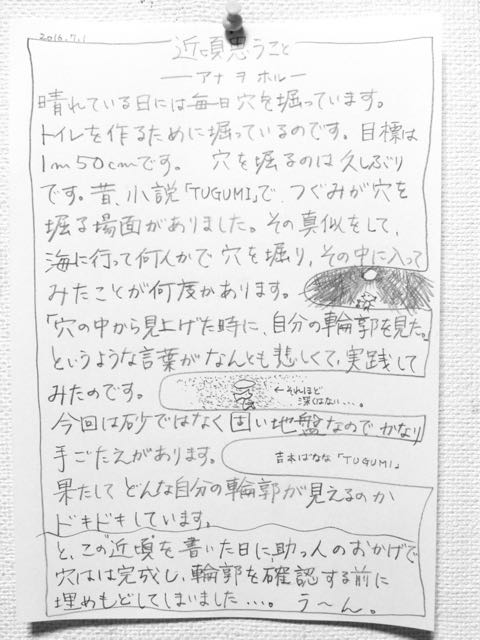 2016.7.1
近頃思うこと
―アナ ヲ ホル―
晴れている日には毎日穴を掘っています。
トイレを作るために掘っているのです。目標は
1m50cmです。 穴を掘るのは久しぶり
です。昔、小説「TUGUMI」で、つぐみが穴を
掘る場面がありました。その真似をして、
海に行って何人かで穴を掘り、その中に入って
みたことが何度かあります。
「穴の中から見上げた時に、自分の輪郭を見た。」
というような言葉がなんとも悲しくて、実践して
みたのです。
←それほど
深くはない…。
今回は砂ではなく固い地盤なのでかなり
手ごたえがあります。
吉本ばなな「TUGUMI」
果たしてどんな自分の輪郭が見えるのか
ドキドキしています。
と、この近頃を書いた日に、助っ人のおかげで
穴はは完成し、輪郭を確認する前に
埋めもどしてしまいました…。う～ん。